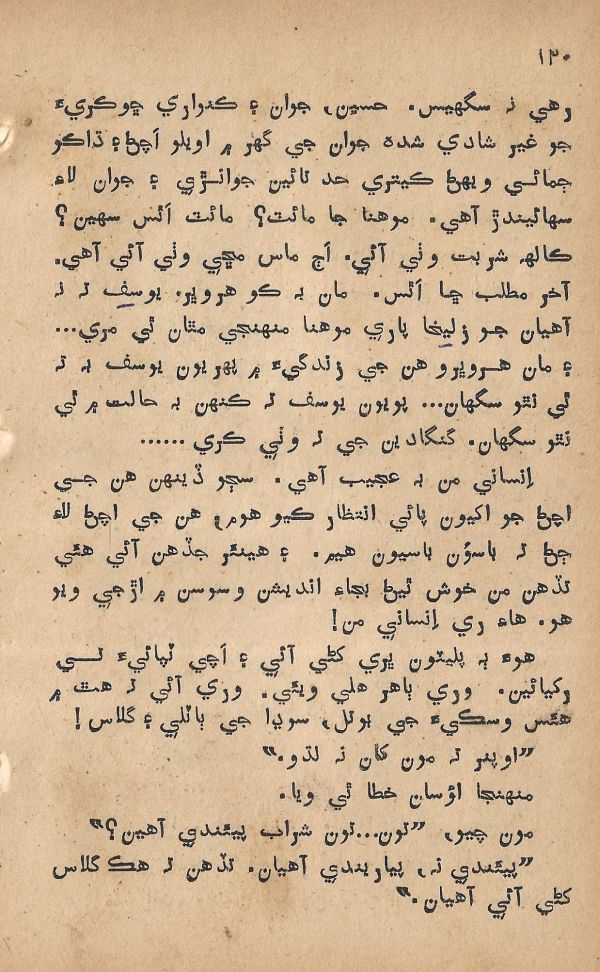 ١٢٠
رهي نہ سگهيس. حسين، جوان ۽ ڪنواري ڇوڪريءَ
جو غير شادي شده جوان جي گهر ۾ اويلو اَچڻ ۽ ڌاڪو
ڄمائي ويهڻ ڪيتري حد تائين جوانڙي ۽ جوان لاءِ
سهائيندڙ آهي. موهنا جا مائٽ؟ مائٽ اَٿس سهين؟
ڪالهہ شربت وٺي آئي. اَڄ ماس مڇي وٺي آئي آهي.
آخر مطلب ڇا اَٿس. مان بہ ڪو هروڀرو يوسف تہ نہ
آهيان جو زليخا پاري موهنا منهنجي مٿان ٿي مري...
۽ مان هروڀرو هن جي زندگيءَ ۾ پهريون يوسف بہ تہ
ٿي نٿو سگهان... پويون يوسف تہ ڪنهن بہ حالت ۾ ٿي
نٿو سگهان. گنگادين جي تہ وٺي ڪري ......
اِنساني من بہ عجيب آهي. سڄو ڏينهن هن جي
اچڻ جو اکيون پائي انتظار ڪيو هوم، هن جي اچڻ لاءِ
ڄڻ تہ باسُون باسيون هيم. ۽ هينئر جڏهن آئي هئي
تڏهن من خوش ٿيڻ بجاءِ انديشن وسوسن ۾ اڙجي ويو
هو. هاءِ ري اِنساني من!
هوءَ ٻہ پليٽون ڀري کڻي آئي ۽ اَچي ٽپائيءَ تي
رکيائين. وري ٻاهر هلي ويئي. وري آئي تہ هٿ ۾
هئس وسڪيءَ جي بوتل، سوڊا جي ٻاٽلي ۽ گلاس!
”اوپنر تہ مون کان نہ لڌو.“
منهنجا اؤسان خطا ٿي ويا.
مون چيو، ”تون...تون شراب پيئندي آهين؟“
”پيئندي نہ، پياريندي آهيان. تڏهن تہ هڪ گلاس
کڻي آئي آهيان.“